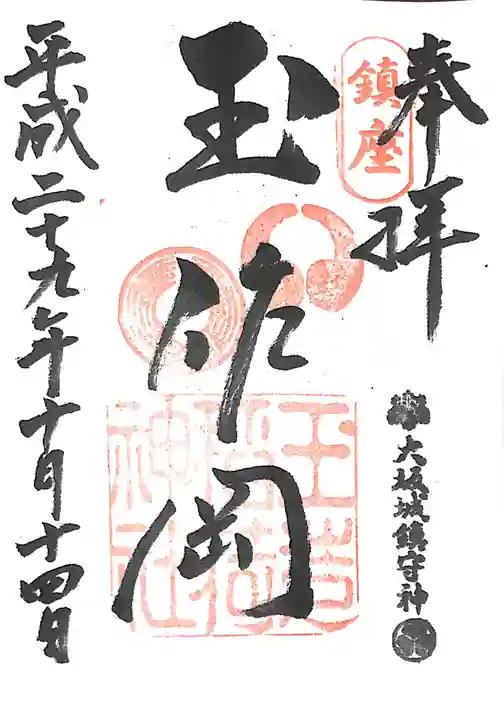 奉拝
鎮座
大坂城鎮守神
玉作岡
玉造
神社
平成二十九年十月十四日